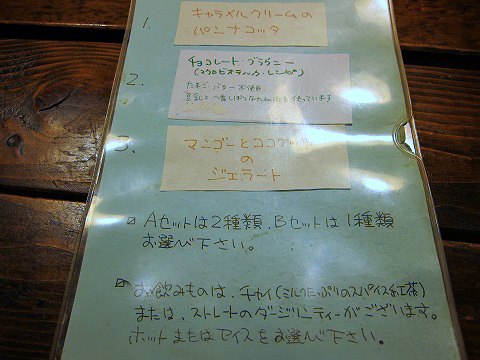 1. キャラメルクリームの
パンナコッタ
2. チョコレート・ブラウニー
(マクロビオティック・レシピ)
たまご、バター不使用
豆乳と一番しぼりなたね油を使っています
3. マンゴーとココナッツ
の
ジェラート
Aセットは2種類、Bセットは1種類
お選び下さい。
お飲みものは、チャイ(ミルクたっぷりのスパイス紅茶)
または、ストレートのダージリンティーがございます。
ホットまたはアイスをお選び下さい。